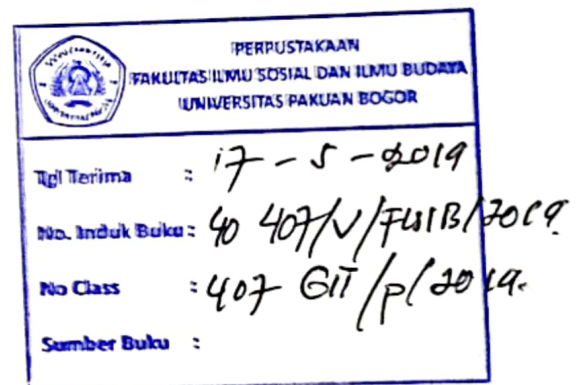 PERPUSTAKAAN
FAKULTAS ILMU SOSIAL DAN ILMU BUDAYA
UNIVERSITAS PAKUAN BOGOR
Tgl Terima : 17 - 5 - 2019
No. Induk Buku : 40 407/V/FISIB/2019
No Class : 407 GIT/p/2019.
Sumber Buku :